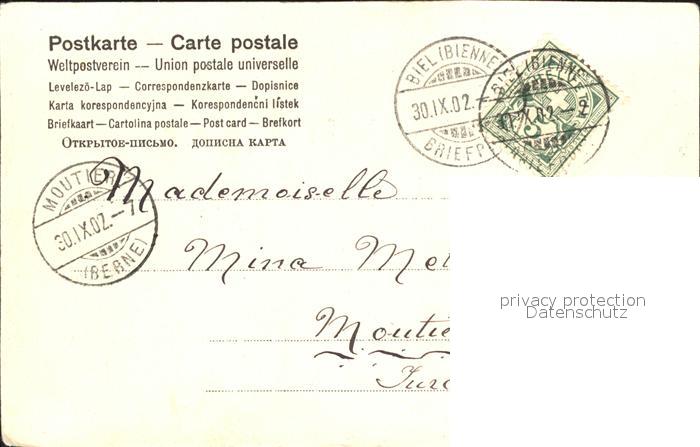 Postkarte — Carte postale
Weltpostverein -- Union postale universelle
Levelezö-Lap — Correspondenzkarte — Dopisnice
Karta korespondencyjna — Korespondenčni listek
Briefkaart — Cartolina postale — Post card — Brefkort
Открытое-письмо. дописна карта
BIEL (BIENNE
30.IX.02.-
BRIEFP
BIEL (BIENNE
IX.02.-
MOUTIER
30.IX.02.-7
(BERNE)
Mademoiselle
Mina
Moutie
Jura
privacy protection
Datenschutz